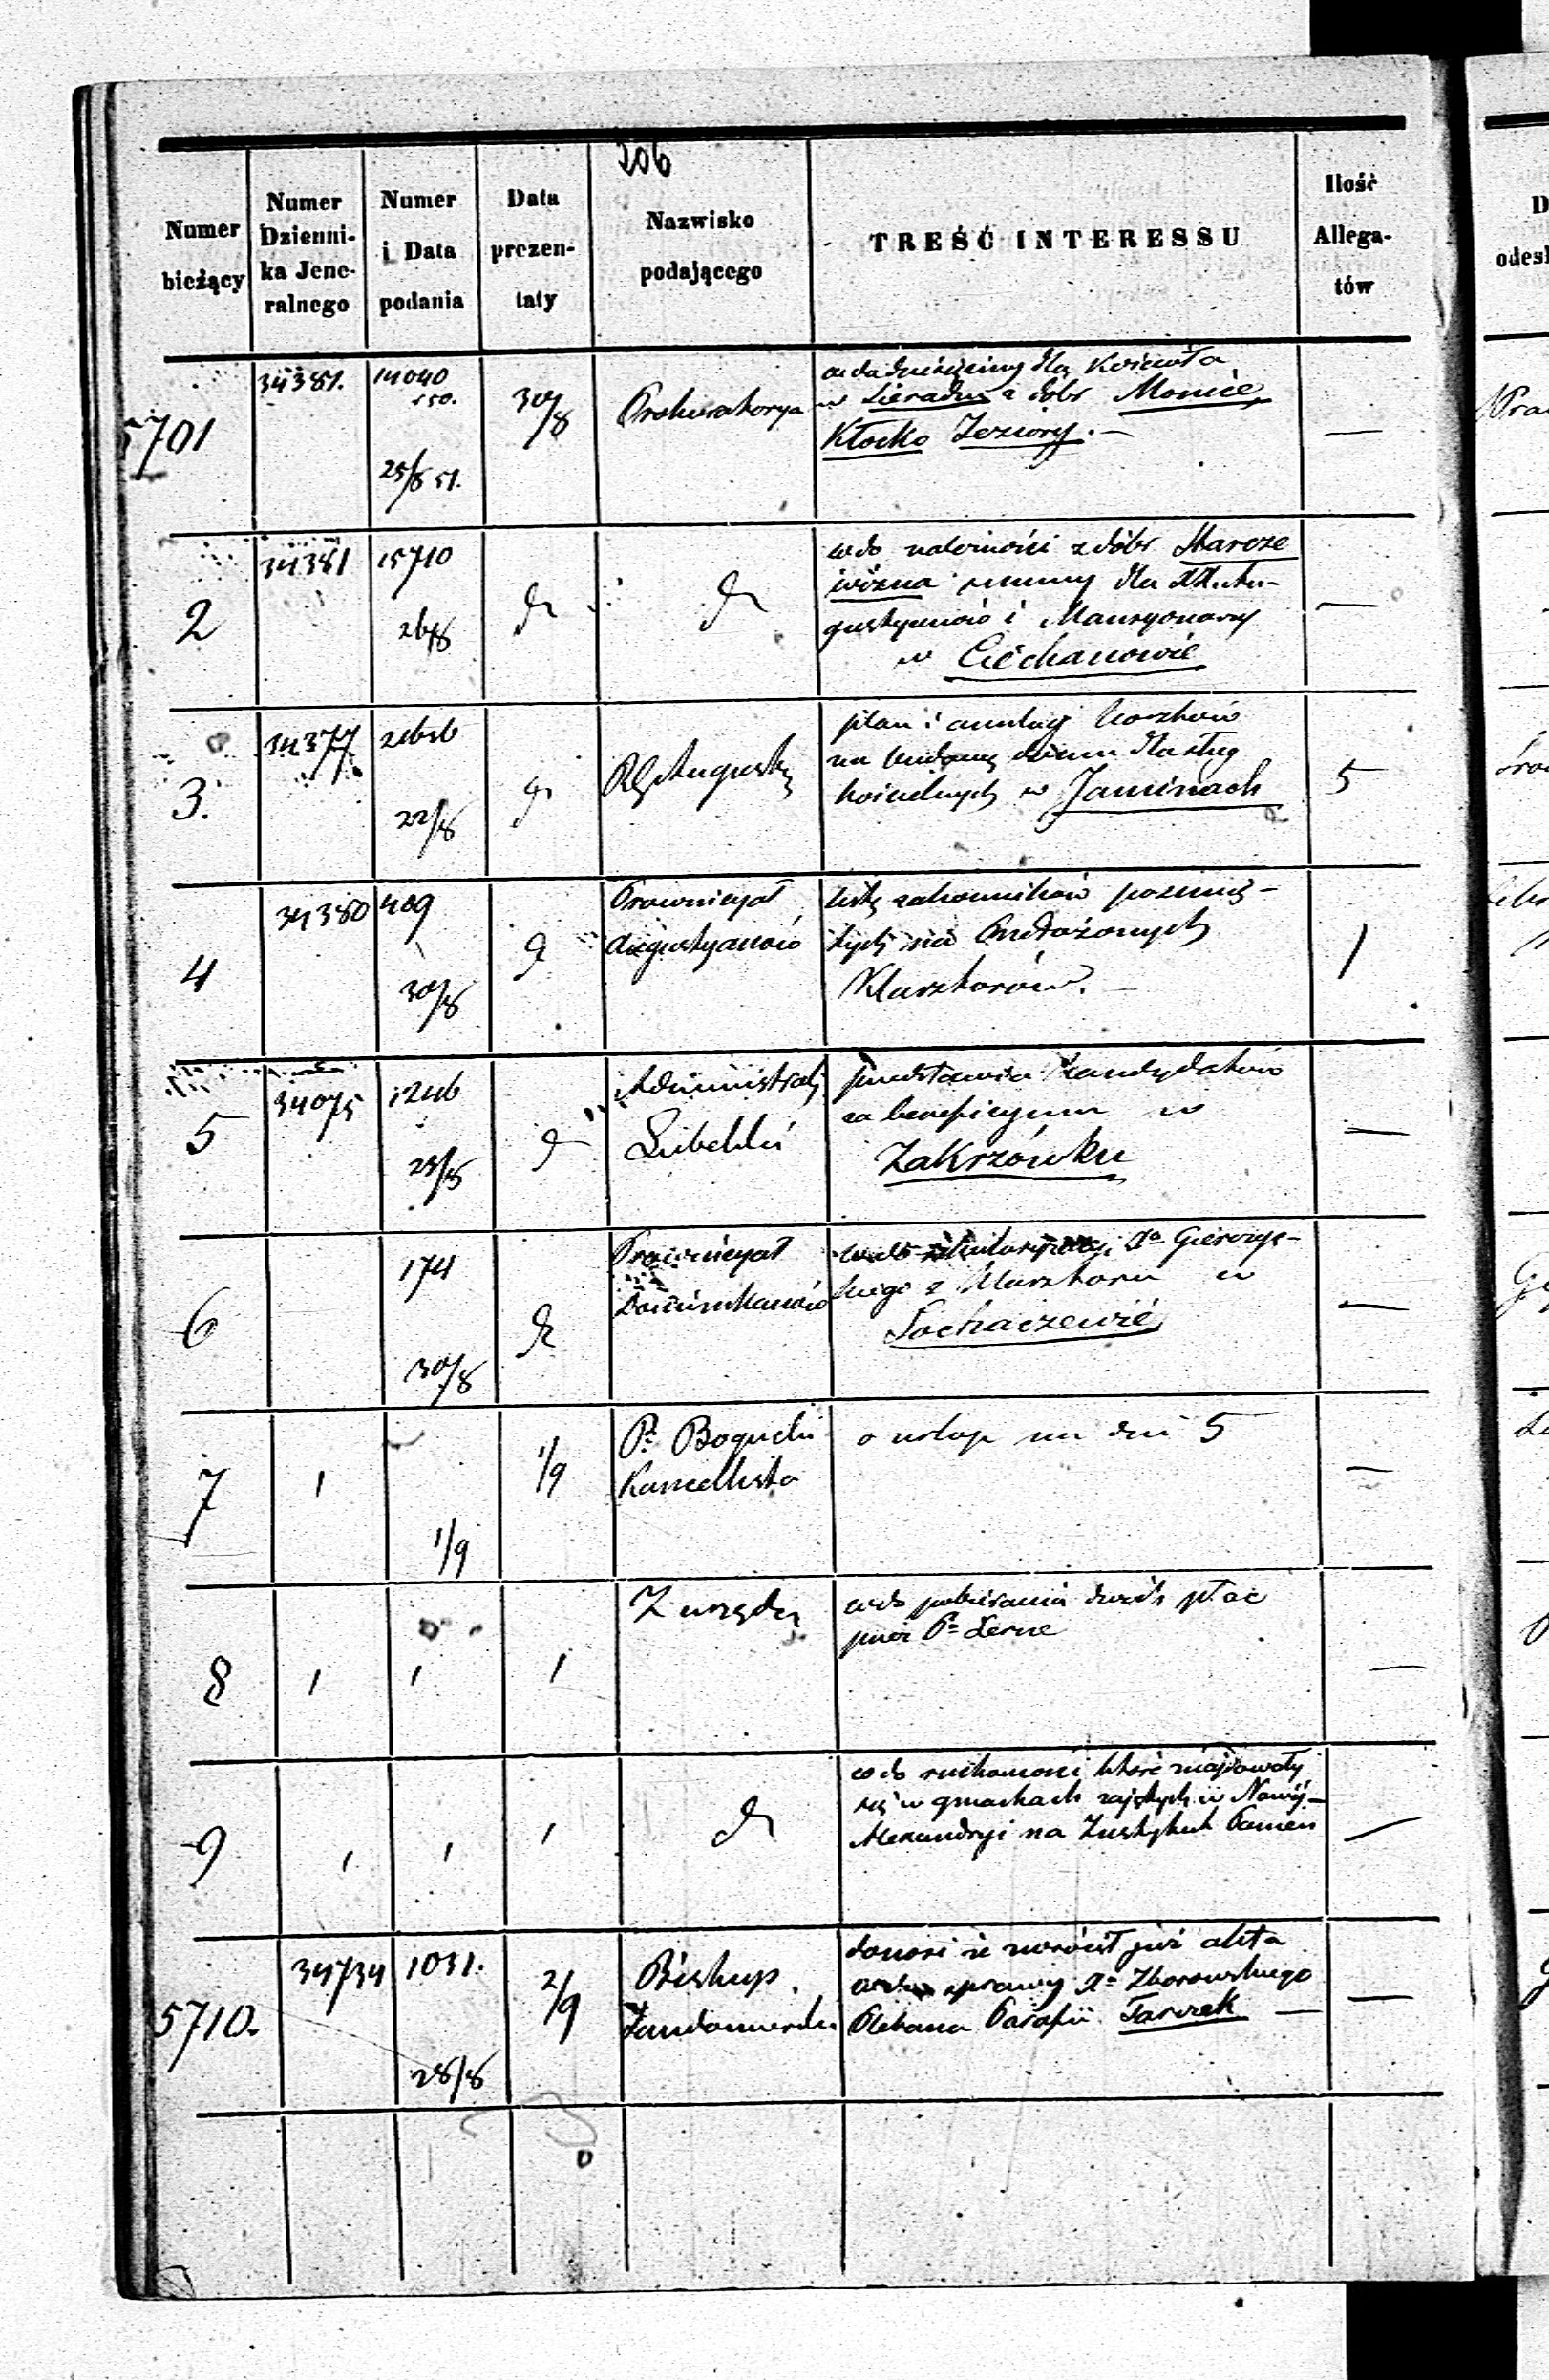 206
Numer bieżący
Numer Dzienni-ka Jene-ralnego
Numer i Data podania
Data prezen-taty
Nazwisko podającego
TREŚĆ INTERESSU
Ilość Allega-tów
5701
34381.
14040
25/8 51.
30/8
Prokuratorya
dla Kościoła
w Sieradzu z dóbr Monice,
Kłocko Jeziory. —
—
2
34381
15710
26/8
d
d
wdo należności z dóbr Starcze
wizna summy dla XX. Au-
gustyanów i Mansyonarzy
w Ciechanowie
—
3.
34377
22/8
d
RG Augustg
plan i anszlag kosztów
na budowę domu dla sług
kościelnych w Janinach
5
4
34380
409
30/8
d
Prowincyał
Augustyanów
listę zakonników
Klasztorów. —
1
5
34075
1246
d
Administrat
Lubelski
przedstawia kandydatów
na beneficyum w
Zakrzówku
—
6
174
30/8
d
Prowincyał
Dominikanów
wdo sekularyzacyi Xa
z Klasztoru w
Sochaczewie
—
7
1
1/9
1/9
P. Bogucki
Kancellista
o urlop na dni 5
—
8
1
1
1
Z urzędu
wdo pobierania dwóch płac
przez Pa
—
9
1
1
1
d
wdo ruchomości które znajdowały
się w gmachach zajętych w Nowéj-
Alexandryi na Instytut Panien
—
5710.
34734
1031.
28/8
2/9
Biskup
Sandomierski
donosi że zwrócił już akta
wdo sprawy Xa Zborowskiego
Plebana Parafii Tarczek —
—